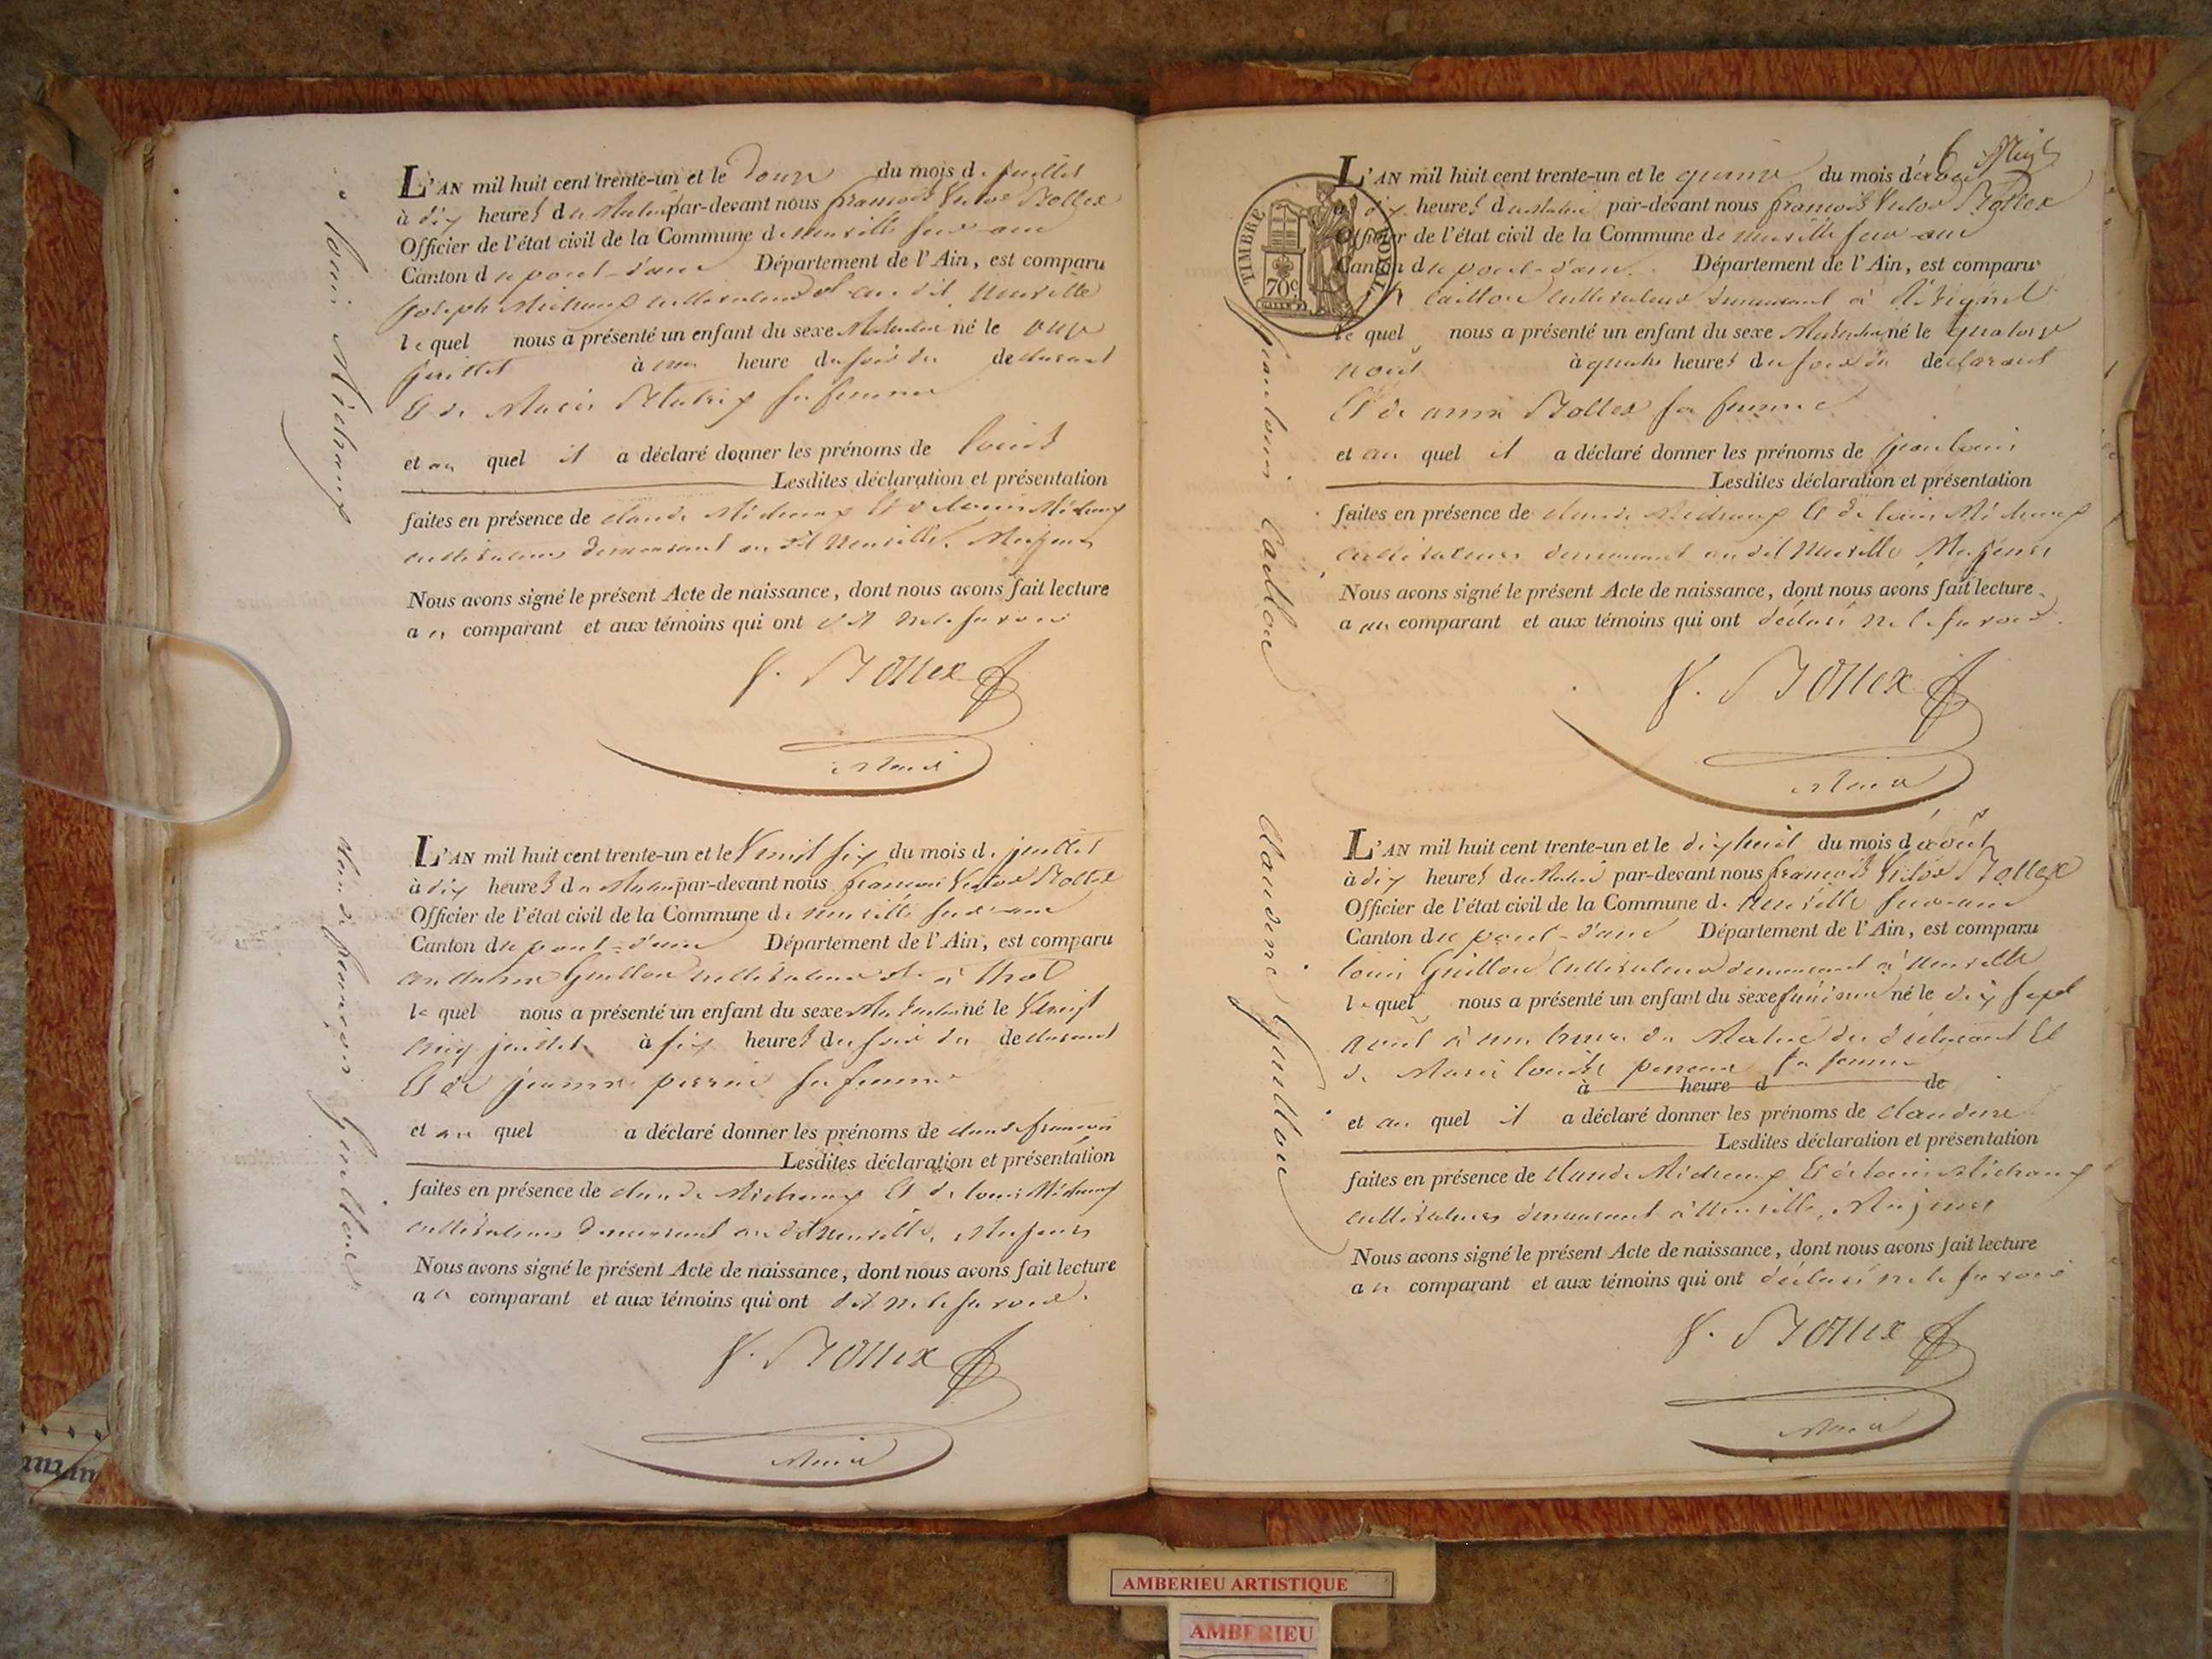 Louis Michaux
L'AN mil huit cent trente-un et le douze du mois de juillet
à dix heures du Matin par-devant nous françois Victor Bollex
Officier de l'état civil de la Commune de neuville sur ain
Canton du pont-d'ain Département de l'Ain, est comparu
joseph Michaux cultivateur au dit Neuville
le quel nous a présenté un enfant du sexe Masculin né le onze
juillet à une heure du soir du declarant
Et de Marie sa femme
et au quel il a déclaré donner les prénoms de Louis
Lesdites déclaration et présentation
faites en présence de claude Michaux Et de louis Michaux
cultivateurs demeurant au dit Neuville, Majeurs
Nous avons signé le présent Acte de naissance, dont nous avons fait lecture
au comparant et aux témoins qui ont dit ne le savoir
V. Bollex
Maire
claude françois Guillon
L'AN mil huit cent trente-un et le Vingt six du mois de juillet
à dix heures du Matin par-devant nous françois Victor Bollex
Officier de l'état civil de la Commune de neuville sur ain
Canton du pont-d'ain Département de l'Ain, est comparu
Guillon cultivateur à thol
le quel nous a présenté un enfant du sexe Masculin né le Vingt
cinq juillet à six heures du soir du declarant
Et de jeanne perrin sa femme
et au quel a déclaré donner les prénoms de claude françois
Lesdites déclaration et présentation
faites en présence de claude Michaux Et de louis Michaux
cultivateurs demeurant au dit neuville, Majeurs
Nous avons signé le présent Acte de naissance, dont nous avons fait lecture
au comparant et aux témoins qui ont dit ne le savoir.
V. Bollex
Maire
6
TIMBRE ROYAL
70c
jean louis Caillon
L'AN mil huit cent trente-un et le quinze du mois d'aout
à dix heures du Matin par-devant nous françois Victor Bollex
Officier de l'état civil de la Commune de neuville sur ain
Canton du pont-d'ain. Département de l'Ain, est comparu
caillon cultivateur demeurant à
le quel nous a présenté un enfant du sexe Masculin né le quatorze
aout à quatre heures du soir du déclarant
Et de anne Bollex sa femme
et au quel il a déclaré donner les prénoms de jean louis
Lesdites déclaration et présentation
faites en présence de claude Michaux Et de louis Michaux
cultivateurs demeurant au dit Neuville Majeurs
Nous avons signé le présent Acte de naissance, dont nous avons fait lecture
au comparant et aux témoins qui ont déclaré ne le savoir.
V. Bollex
Maire
claudine Guillon
L'AN mil huit cent trente-un et le dix huit du mois d'aout
à dix heures du Matin par-devant nous françois Victor Bollex
Officier de l'état civil de la Commune de Neuville sur ain
Canton du pont-d'ain Département de l'Ain, est comparu
louis Guillon cultivateur demeurant à Neuville
le quel nous a présenté un enfant du sexe féminin né le dix sept
aout à une heure du Matin du déclarant Et
de Marie louise sa femme
à heure d de
et au quel il a déclaré donner les prénoms de claudine
Lesdites déclaration et présentation
faites en présence de claude Michaux Et de louis Michaux
cultivateurs demeurant à Neuville, Majeurs
Nous avons signé le présent Acte de naissance, dont nous avons fait lecture
au comparant et aux témoins qui ont déclaré ne le savoir
V. Bollex
Maire
AMBERIEU ARTISTIQUE
AMBERIEU